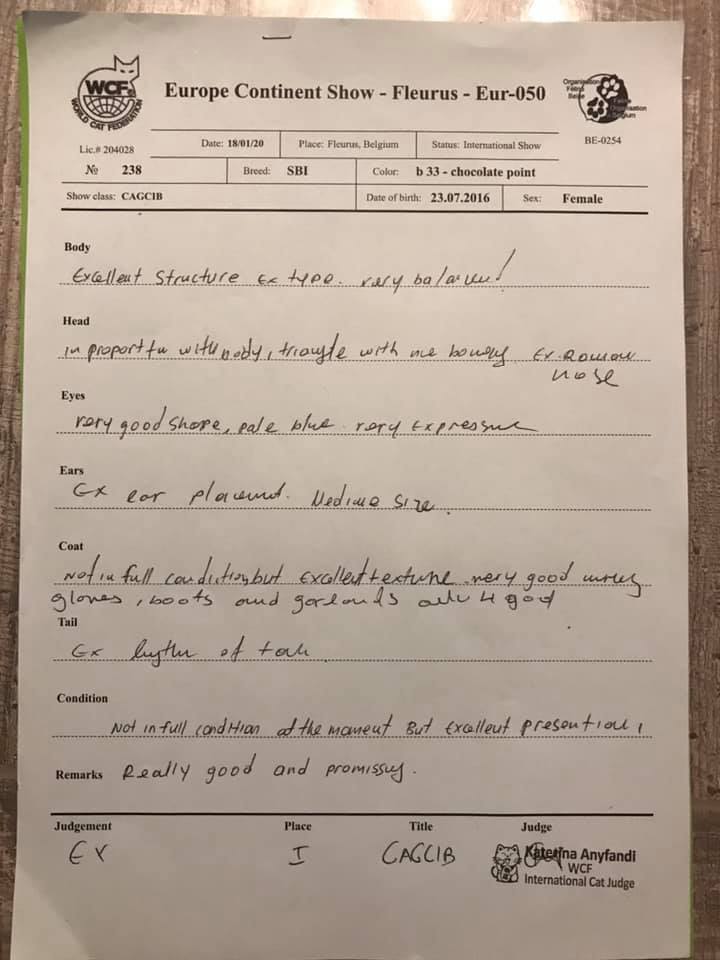 WCF
WORLD CAT FEDERATION
Europe Continent Show - Fleurus - Eur-050
Lic.# 204028
Date: 18/01/20 Place: Fleurus, Belgium Status: International Show
BE-0254
№ 238 Breed: SBI Color: b 33 - chocolate point
Show class: CAGCIB Date of birth: 23.07.2016 Sex: Female
Body
Excellent Structure Ex type. very balance!
Head
in with body, triangle with Ex. Roman
nose
Eyes
very good shape, pale blue very Expressive
Ears
Ex ear placement. Medium size.
Coat
Not in full condition but Excellent texture very good
gloves, boots and good
Tail
Ex of
Condition
Not in full condition at the moment But Excellent
Remarks Really good and
Judgement Place Title Judge
EX I CAGCIB
Katerina Anyfandi
WCF
International Cat Judge